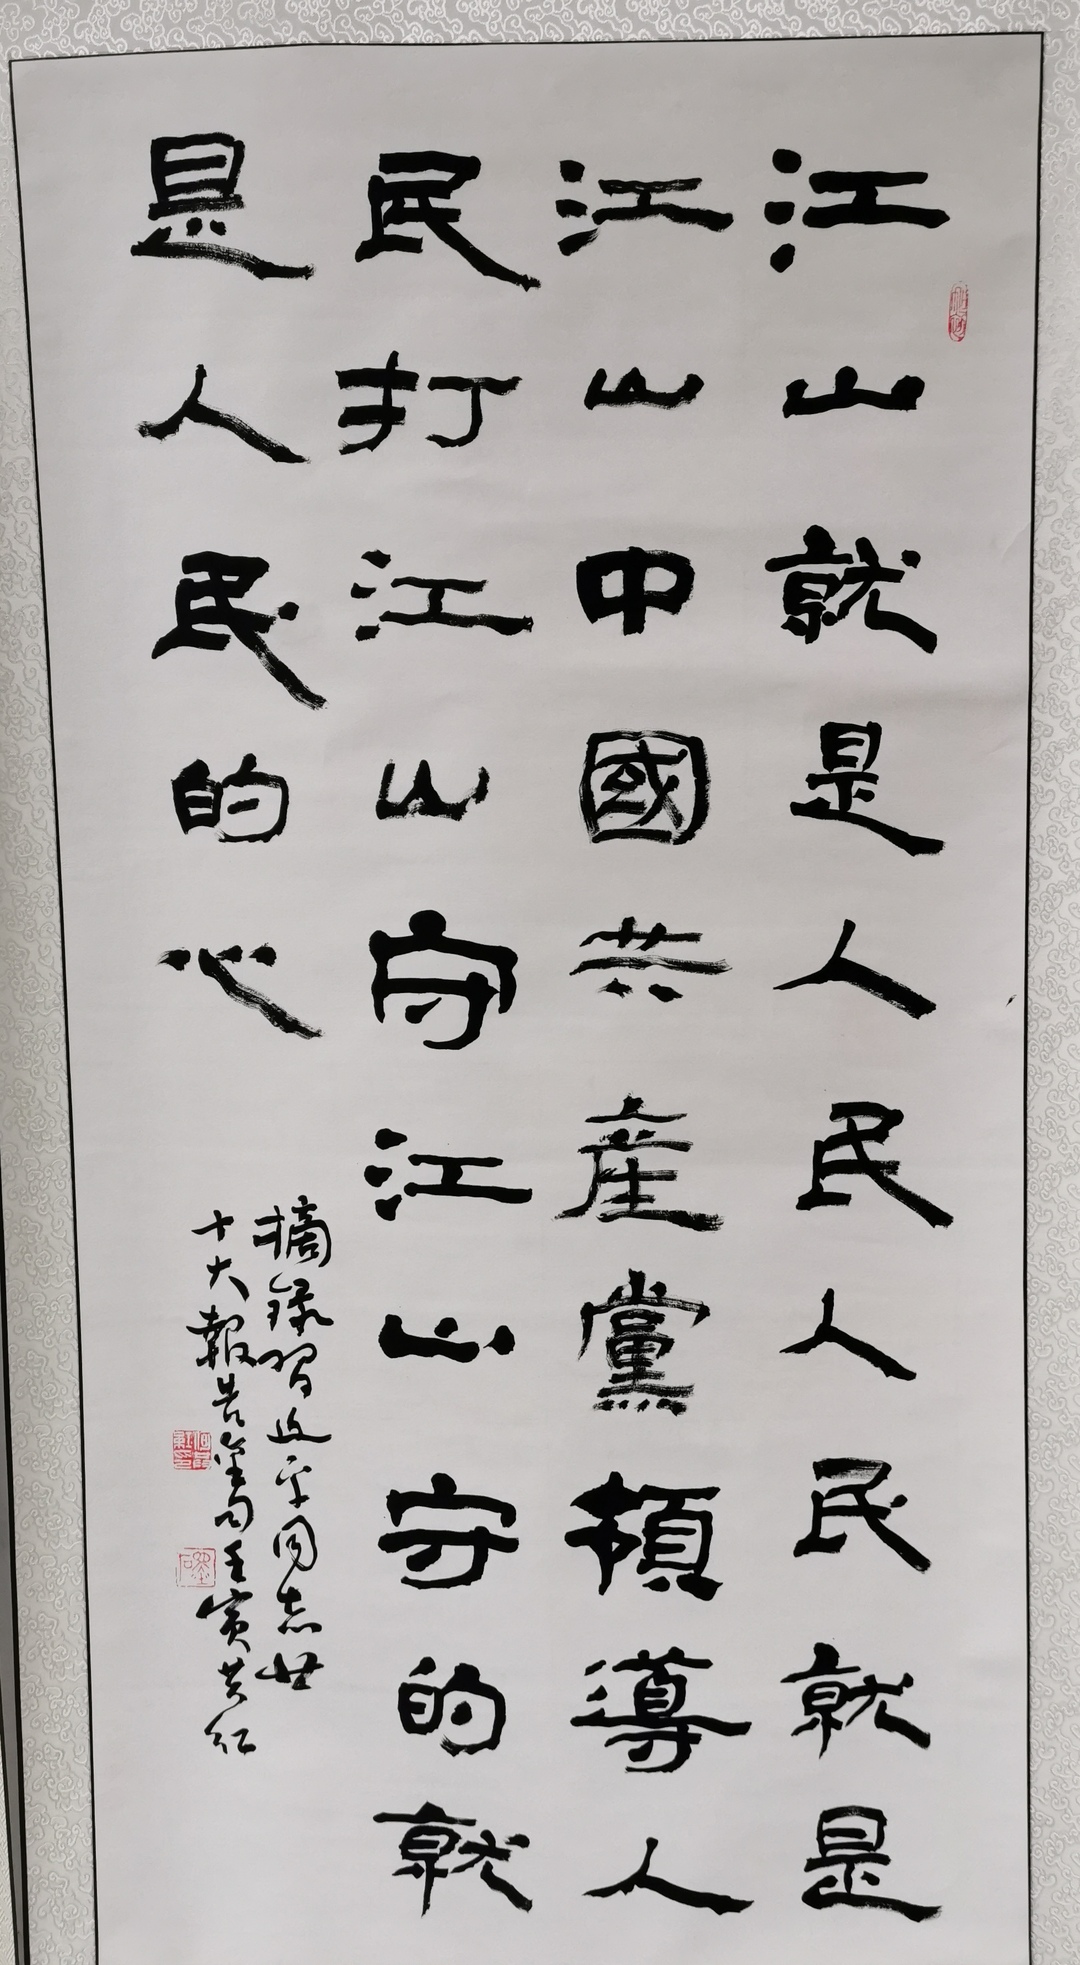 江山就是人民人民就是
江山中國共産黨領導人
民打江山守江山守的就
是人民的心
摘錄習近平同志廿
十大報告金句壬寅共紅